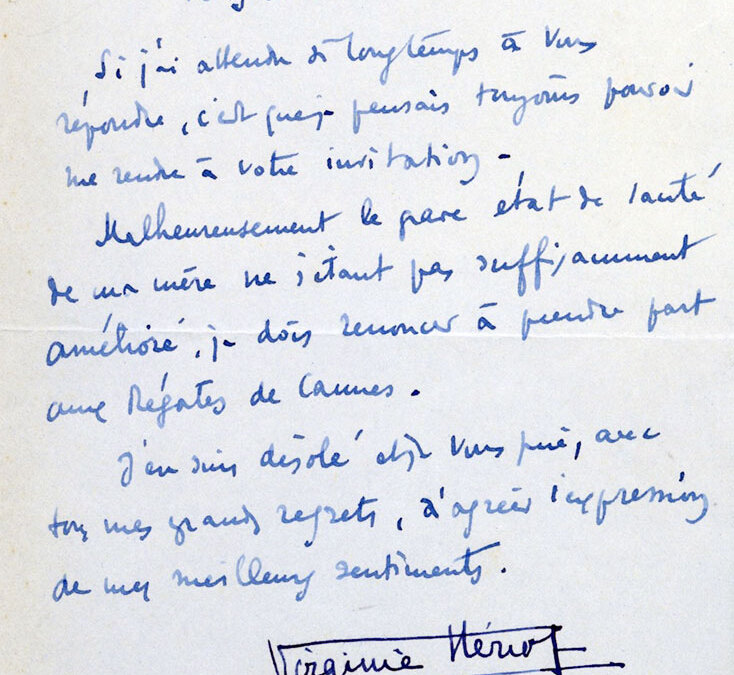 Si j'ai attendu si longtemps à vous
répondre, c'est que je pensais toujours pouvoir
me rendre à votre invitation -
Malheureusement le grave état de santé
de ma mère ne s'étant pas suffisamment
amélioré, je dois renoncer à prendre part
aux Régates de Cannes.
J'en suis désolé et je vous prie, avec
tous mes grands regrets, d'agréer l'expression
de mes meilleurs sentiments.
Virginie Hériot